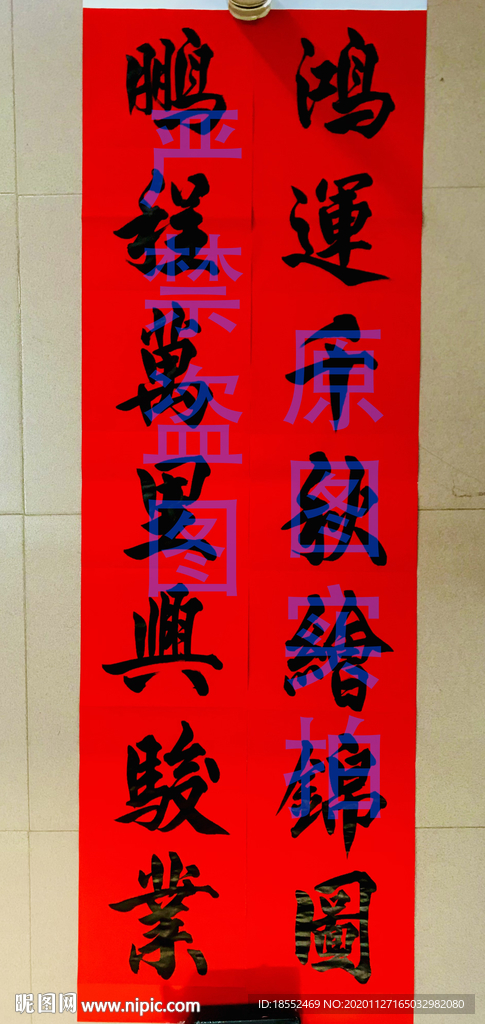 鴻運千秋繪錦圖
鵬程萬里興駿業
原图实拍
严禁盗图
昵图网 www.nipic.com
ID:18552469 NO:20201127165032982080